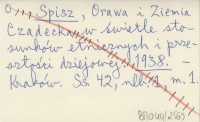 Spisz, Orawa i Ziemia
Czadecka w świetle sto-
sunków etnicznych i prze-
szłości dziejowej. 1938. –
Kraków. Ss 42, nlb. 1, m. 1.